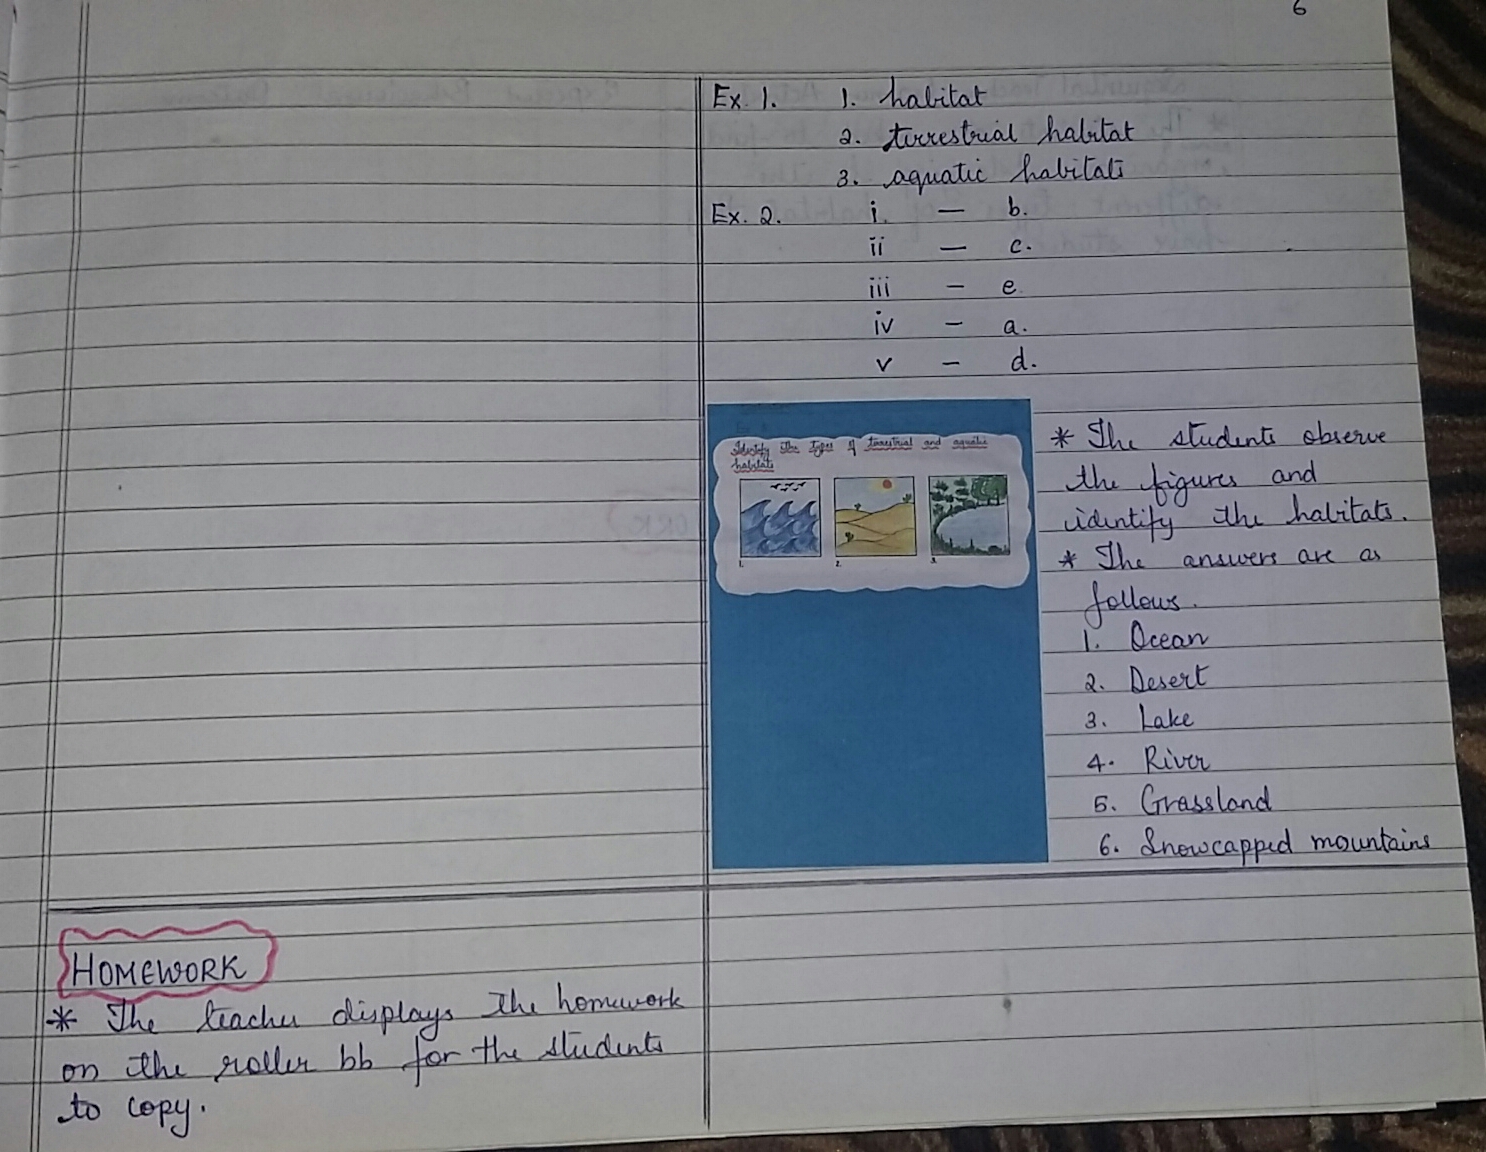 6
Ex. 1. 1. habitat
2. terrestrial habitat
3. aquatic habitats
Ex. 2. i. — b.
ii — c.
iii — e
iv — a.
v — d.
Identify the types of terrestrial and aquatic
habitats
1. 2. 3.
* The students observe
the figures and
identify the habitats.
* The answers are as
follows.
1. Ocean
2. Desert
3. Lake
4. River
5. Grassland
6. Snowcapped mountains
HOMEWORK
* The teacher displays the homework
on the roller bb for the students
to copy.